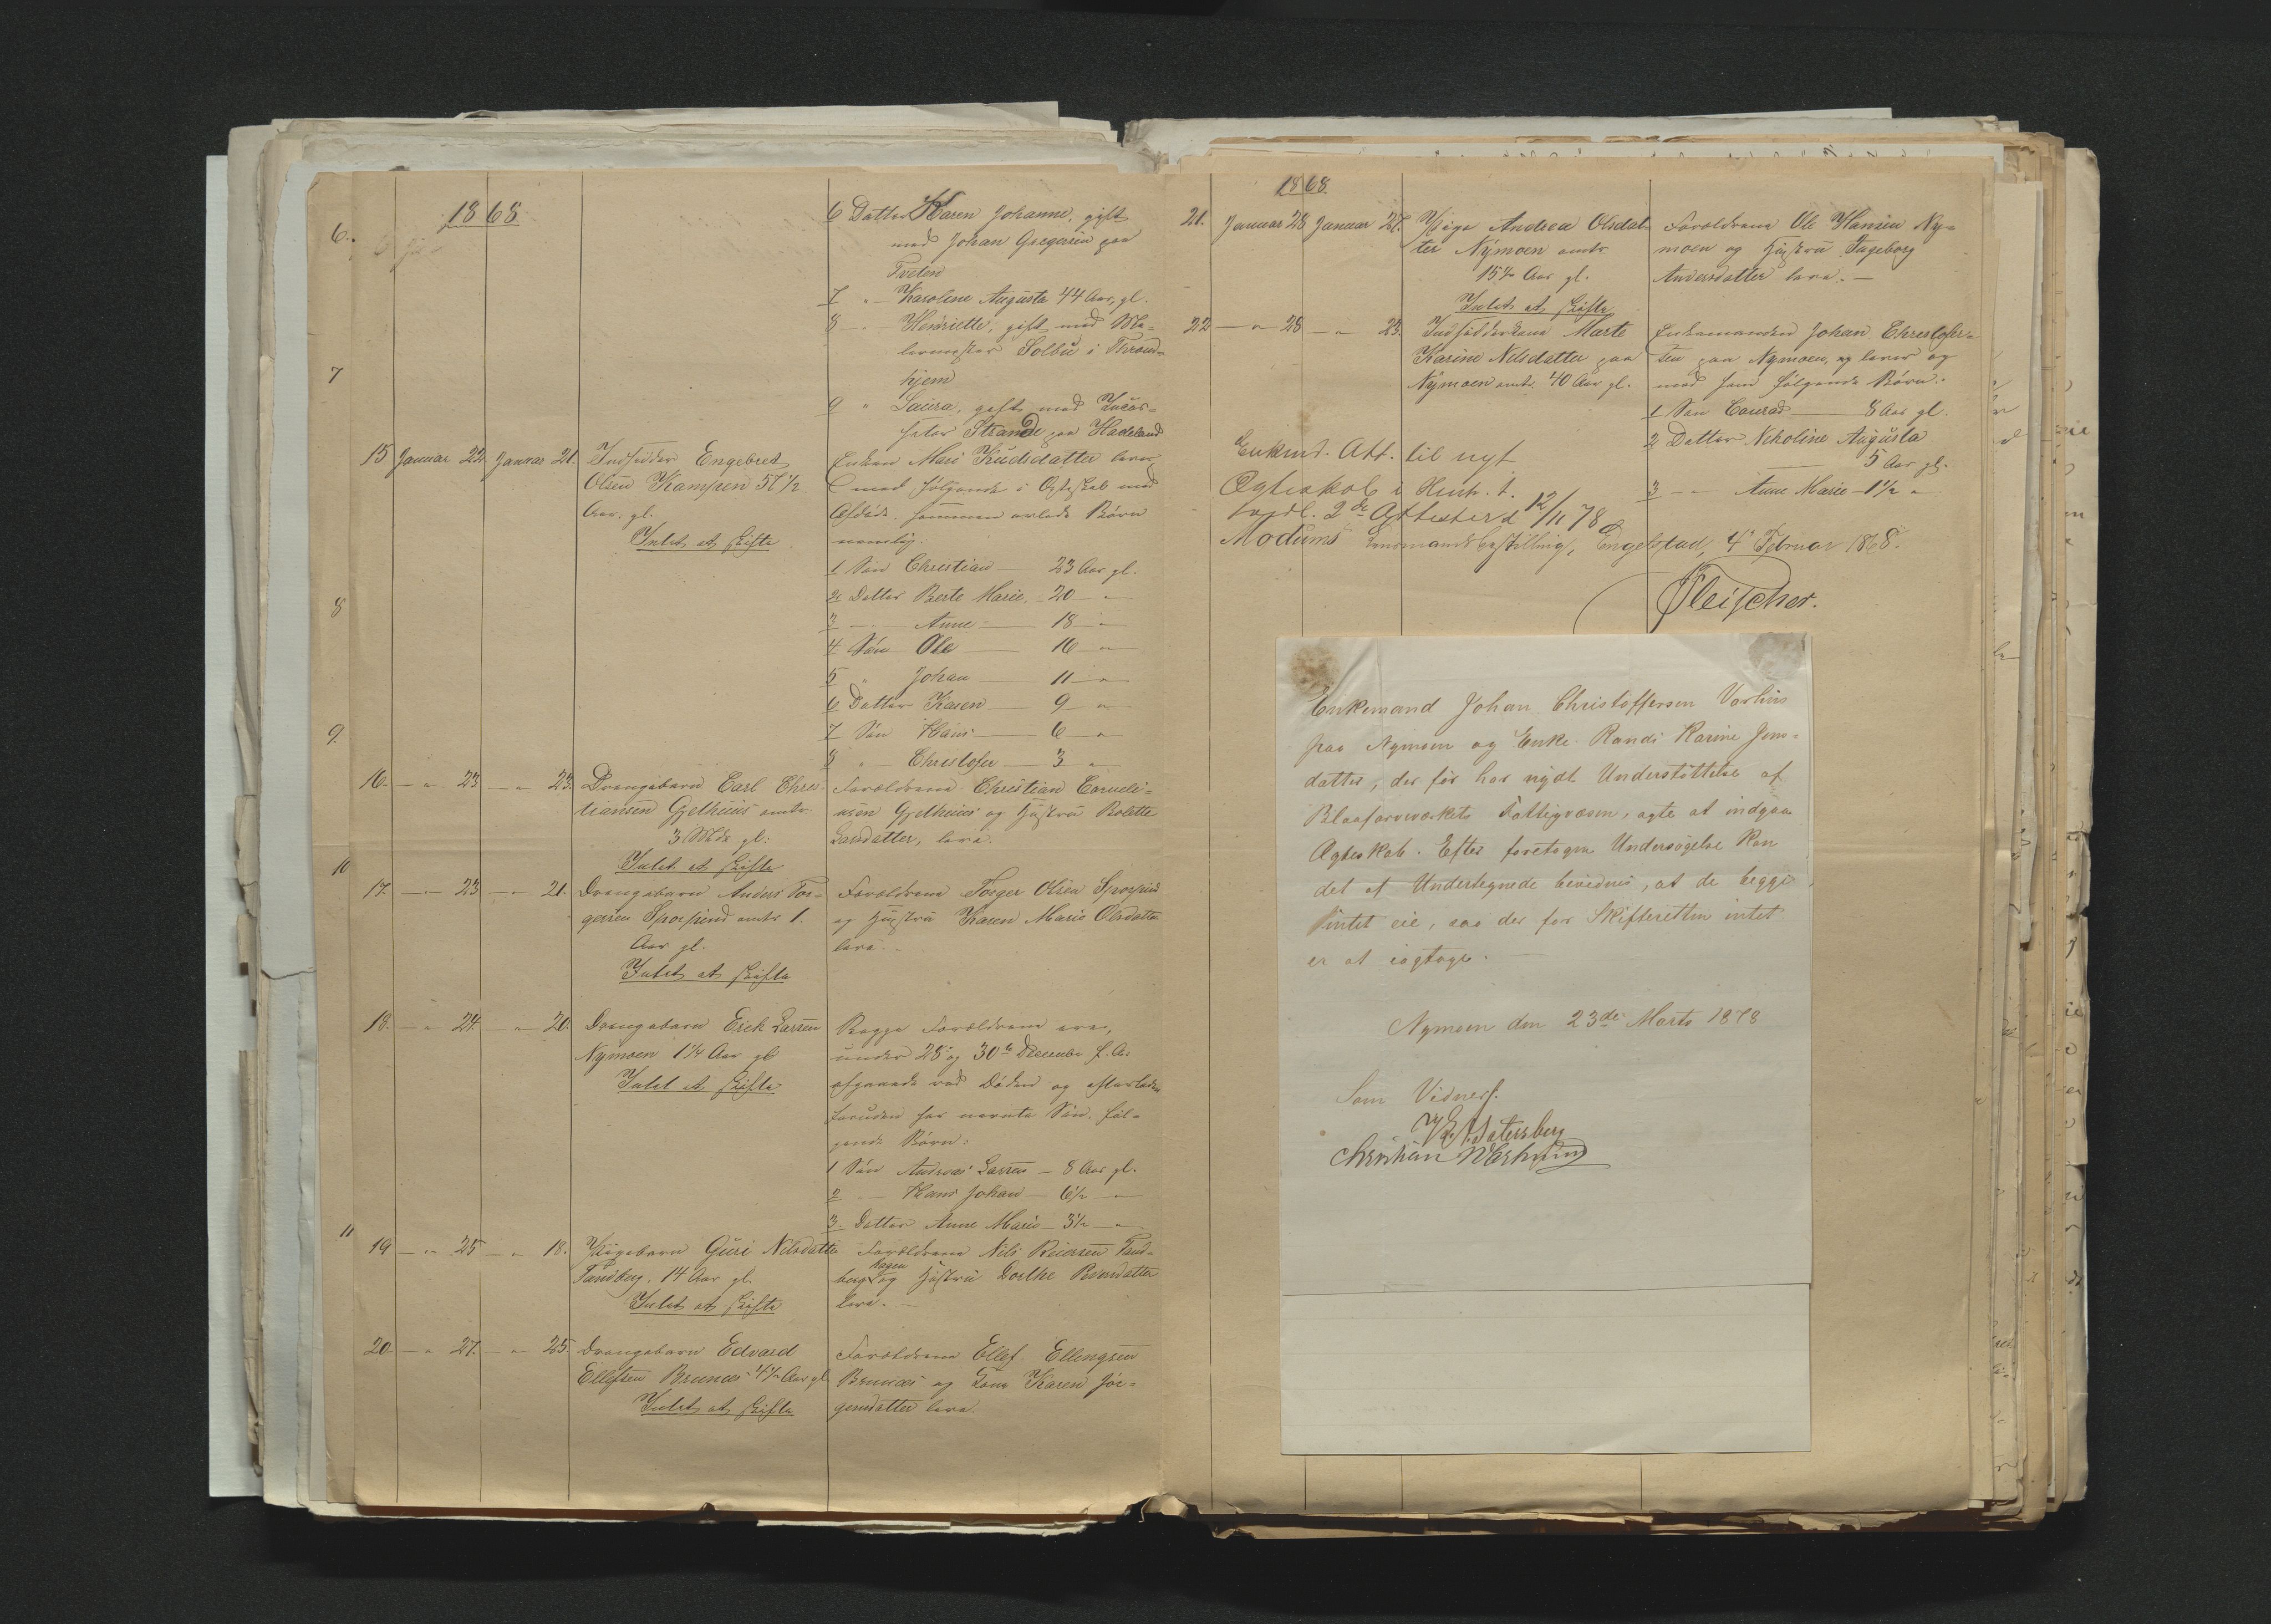 1868
6 Datter Karen Johanne, gift
med Johan Gregersen paa
Tveten
7 " Karoline Augusta 44 Aar, gl.
8 " Henriette, gift med Ma-
lermester Solbu i Thrond-
hjem
9 " Laura, gift med
Strande paa Hadeland
6.
7
8
9.
10
11
15 Januar 22 Januar 21. Indsidder Engebret
Olsen Kampen 57 1/2
Aar. gl.
Intet at skifte
Enken Mari Kudsdatter lever
med følgende i Ægteskab med
Afdøde sammen avlede Børn
nemlig:
1 Søn Christian — 23 Aar gl.
2 Datter Berte Marie. 20 — "
3 — Anne — 18 — "
4 Søn Ole — 16 — "
5 " Johan — 11 — "
6 Datter Karen — 9 — "
7 Søn Hans — 6 — "
8 " — Christofer — 3 "
16. — " 23 — " 23. Drengebarn Carl Chris-
tiansen Gjethuus omtr.
3 Mdr gl.
Intet at skifte
Forældrene Christian Corneli-
usen Gjethuus og Hustru Bolette
Larsdatter, leve.
17. — " 23 — " 21. Drengebarn Anders Tor-
gersen omtr 1.
Aar gl.
Intet at skifte
Forældrene Torger Olsen
og Hustru Karen Marie Olsdatter
leve. —
18. — " 24. — " 20. Drengebarn Erik Larsen
Nymoen 1 1/4 Aar gl
Intet at skifte
Begge Forældrene ere,
under 25 og 30te December f. A.
afgaaede ved Døden og efterlader
foruden her nævnte Søn, føl-
gende Børn:
1 Søn Andreas Larsen — 8 Aar gl.
2 — Hans Johan — 6 1/2 — "
3. Datter Anne Marie — 3 1/2 — "
19 — " 25 — " 18. Pigebarn Guri Nilsdatter
Tandberg, 14 Aar gl.
Intet at skifte
Forældrene Nils Tand-
berg hagen og Hustru Dorthe
leve. —
20 — " 27. — " 25 Drengebarn Edvard
Ellefsen Brunæs 4 1/2 Aar gl
Intet at skifte
Forældrene Ellef Ellingsen
Brunæs og Kone Karen Jør-
gensdatter leve.
1868.
21. Januar 28 Januar 27. Pige Andrea Olsdat-
ter Nymoen omtr.
15 1/2 Aar gl.
Intet at skifte
Forældrene Ole Hansen Ny-
moen og Hustru Ingeborg
Andersdatter leve. —
22 — " 28 — " 23. Indsidderkone Marte
Karine Nilsdatter paa
Nymoen omtr. 40 Aar gl.
Enkemanden Johan Christofer-
sen paa Nymoen, lever og
med ham følgende Børn:
1 Søn Conrad — 8 Aar gl.
2 Datter Nikoline Augusta
5 Aar gl.
3 — — Anne Marie — 1 1/2 "
Enkmd. Att. til nyt
Ægteskab i Henh. t.
vedl. 2de Attester d 12/11 78
Modums Lensmandsbestilling, Engelstad, 4' Februar 1868.
Fleischer.
Enkemand Johan Christoffersen Vorhus
fraa Nymoen og Enke Randi Karine Jens-
datter, der før har nydt Understøttelse af
Blaafarveværkets Fattigvæsen, agte at indgaa
Ægteskab. Efter foretagen Undersøgelse kan
det af Undertegnede bevidnes, at de begge
Intet eie, saa der for Skifteretten intet
er at iagttage. —
Nymoen den 23de Marts 1878
Som Vidner.
Christian